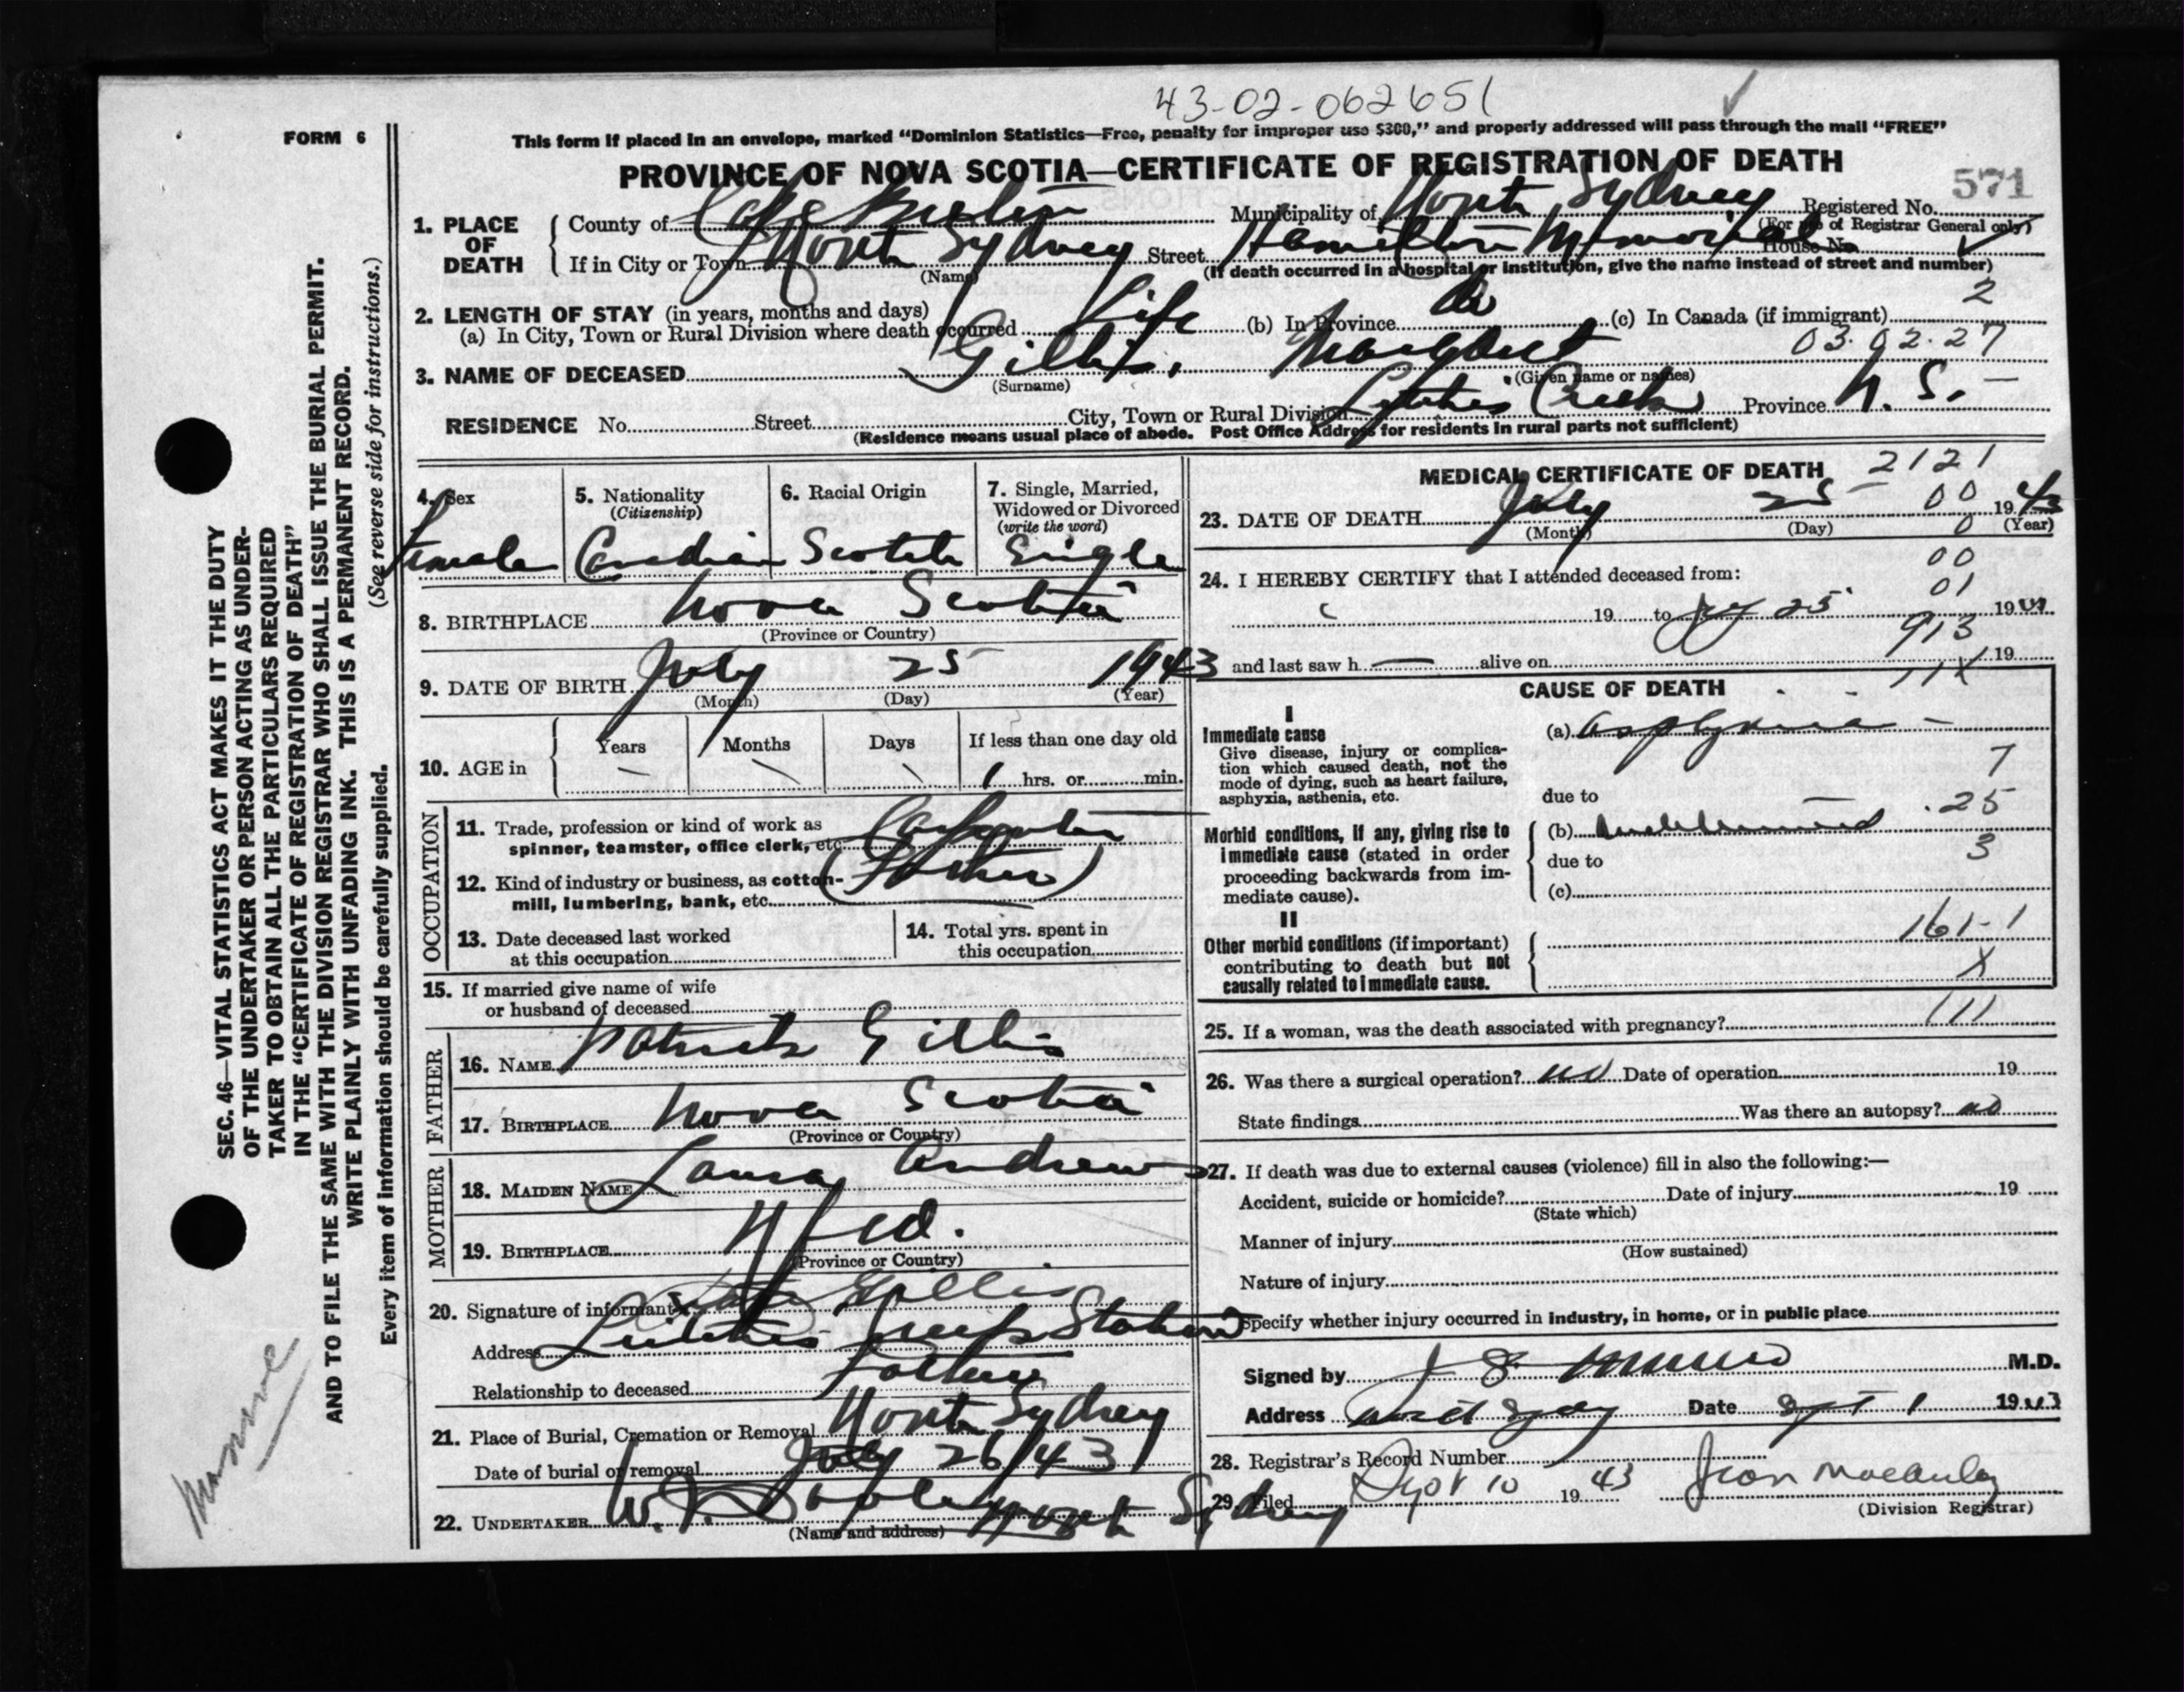 43-02-062651
FORM 6
This form if placed in an envelope, marked "Dominion Statistics—Free, penalty for improper use $300," and properly addressed will pass through the mail "FREE"
PROVINCE OF NOVA SCOTIA—CERTIFICATE OF REGISTRATION OF DEATH
571
1. PLACE OF DEATH
County of Cape Breton Municipality of North Sydney Registered No.
(For use of Registrar General only)
If in City or Town North Sydney Street Hamilton Memorial House No.
(Name) (If death occurred in a hospital or institution, give the name instead of street and number)
2. LENGTH OF STAY (in years, months and days)
(a) In City, Town or Rural Division where death occurred Life (b) In Province do (c) In Canada (if immigrant)
2
03.02.27
3. NAME OF DECEASED Gillis, Margaret
(Surname) (Given name or names)
RESIDENCE No. Street City, Town or Rural Division Leitches Creek Province N. S. —
(Residence means usual place of abode. Post Office Address for residents in rural parts not sufficient)
4. Sex
Female
5. Nationality
(Citizenship)
Canadian
6. Racial Origin
Scotch
7. Single, Married, Widowed or Divorced
(write the word)
Single
8. BIRTHPLACE Nova Scotia
(Province or Country)
9. DATE OF BIRTH July 25 1943
(Month) (Day) (Year)
10. AGE in
Years Months Days If less than one day old
— \ \ 1 hrs. or min.
OCCUPATION
11. Trade, profession or kind of work as
spinner, teamster, office clerk, etc. Carpenter
12. Kind of industry or business, as cotton-
mill, lumbering, bank, etc. (Father)
13. Date deceased last worked
at this occupation
14. Total yrs. spent in
this occupation
15. If married give name of wife
or husband of deceased
FATHER
16. NAME Patrick Gillis
17. BIRTHPLACE Nova Scotia
(Province or Country)
MOTHER
18. MAIDEN NAME Laura Andrews
19. BIRTHPLACE Nfld.
(Province or Country)
20. Signature of informant Gillis
Address Leitches Creek Station
Relationship to deceased Father
21. Place of Burial, Cremation or Removal North Sydney
Date of burial or removal July 26/43
22. UNDERTAKER W. North Sydney
(Name and address)
MEDICAL CERTIFICATE OF DEATH
2121
23. DATE OF DEATH July 25 00 1943
(Month) (Day) 0 (Year)
00
24. I HEREBY CERTIFY that I attended deceased from:
01
19 to July 25 1943
913
and last saw h — alive on 19
11X
CAUSE OF DEATH
I
Immediate cause
Give disease, injury or complica-
tion which caused death, not the
mode of dying, such as heart failure,
asphyxia, asthenia, etc.
(a) asphyxia —
7
due to
.25
Morbid conditions, if any, giving rise to
immediate cause (stated in order
proceeding backwards from im-
mediate cause).
(b)
3
due to
(c)
II
Other morbid conditions (if important)
contributing to death but not
causally related to immediate cause.
161-1
X
25. If a woman, was the death associated with pregnancy? 111
26. Was there a surgical operation? no Date of operation 19
State findings Was there an autopsy? no
27. If death was due to external causes (violence) fill in also the following:—
Accident, suicide or homicide? Date of injury 19
(State which)
Manner of injury
(How sustained)
Nature of injury
Specify whether injury occurred in industry, in home, or in public place
Signed by J S Munro M.D.
Address North Sydney Date Sept 1 1943
28. Registrar's Record Number
29. Filed Sept 10 1943 Jean MacAuley
(Division Registrar)
SEC. 46—VITAL STATISTICS ACT MAKES IT THE DUTY
OF THE UNDERTAKER OR PERSON ACTING AS UNDER-
TAKER TO OBTAIN ALL THE PARTICULARS REQUIRED
IN THE "CERTIFICATE OF REGISTRATION OF DEATH"
AND TO FILE THE SAME WITH THE DIVISION REGISTRAR WHO SHALL ISSUE THE BURIAL PERMIT.
WRITE PLAINLY WITH UNFADING INK. THIS IS A PERMANENT RECORD.
(See reverse side for instructions.)
Every item of information should be carefully supplied.
Munroe